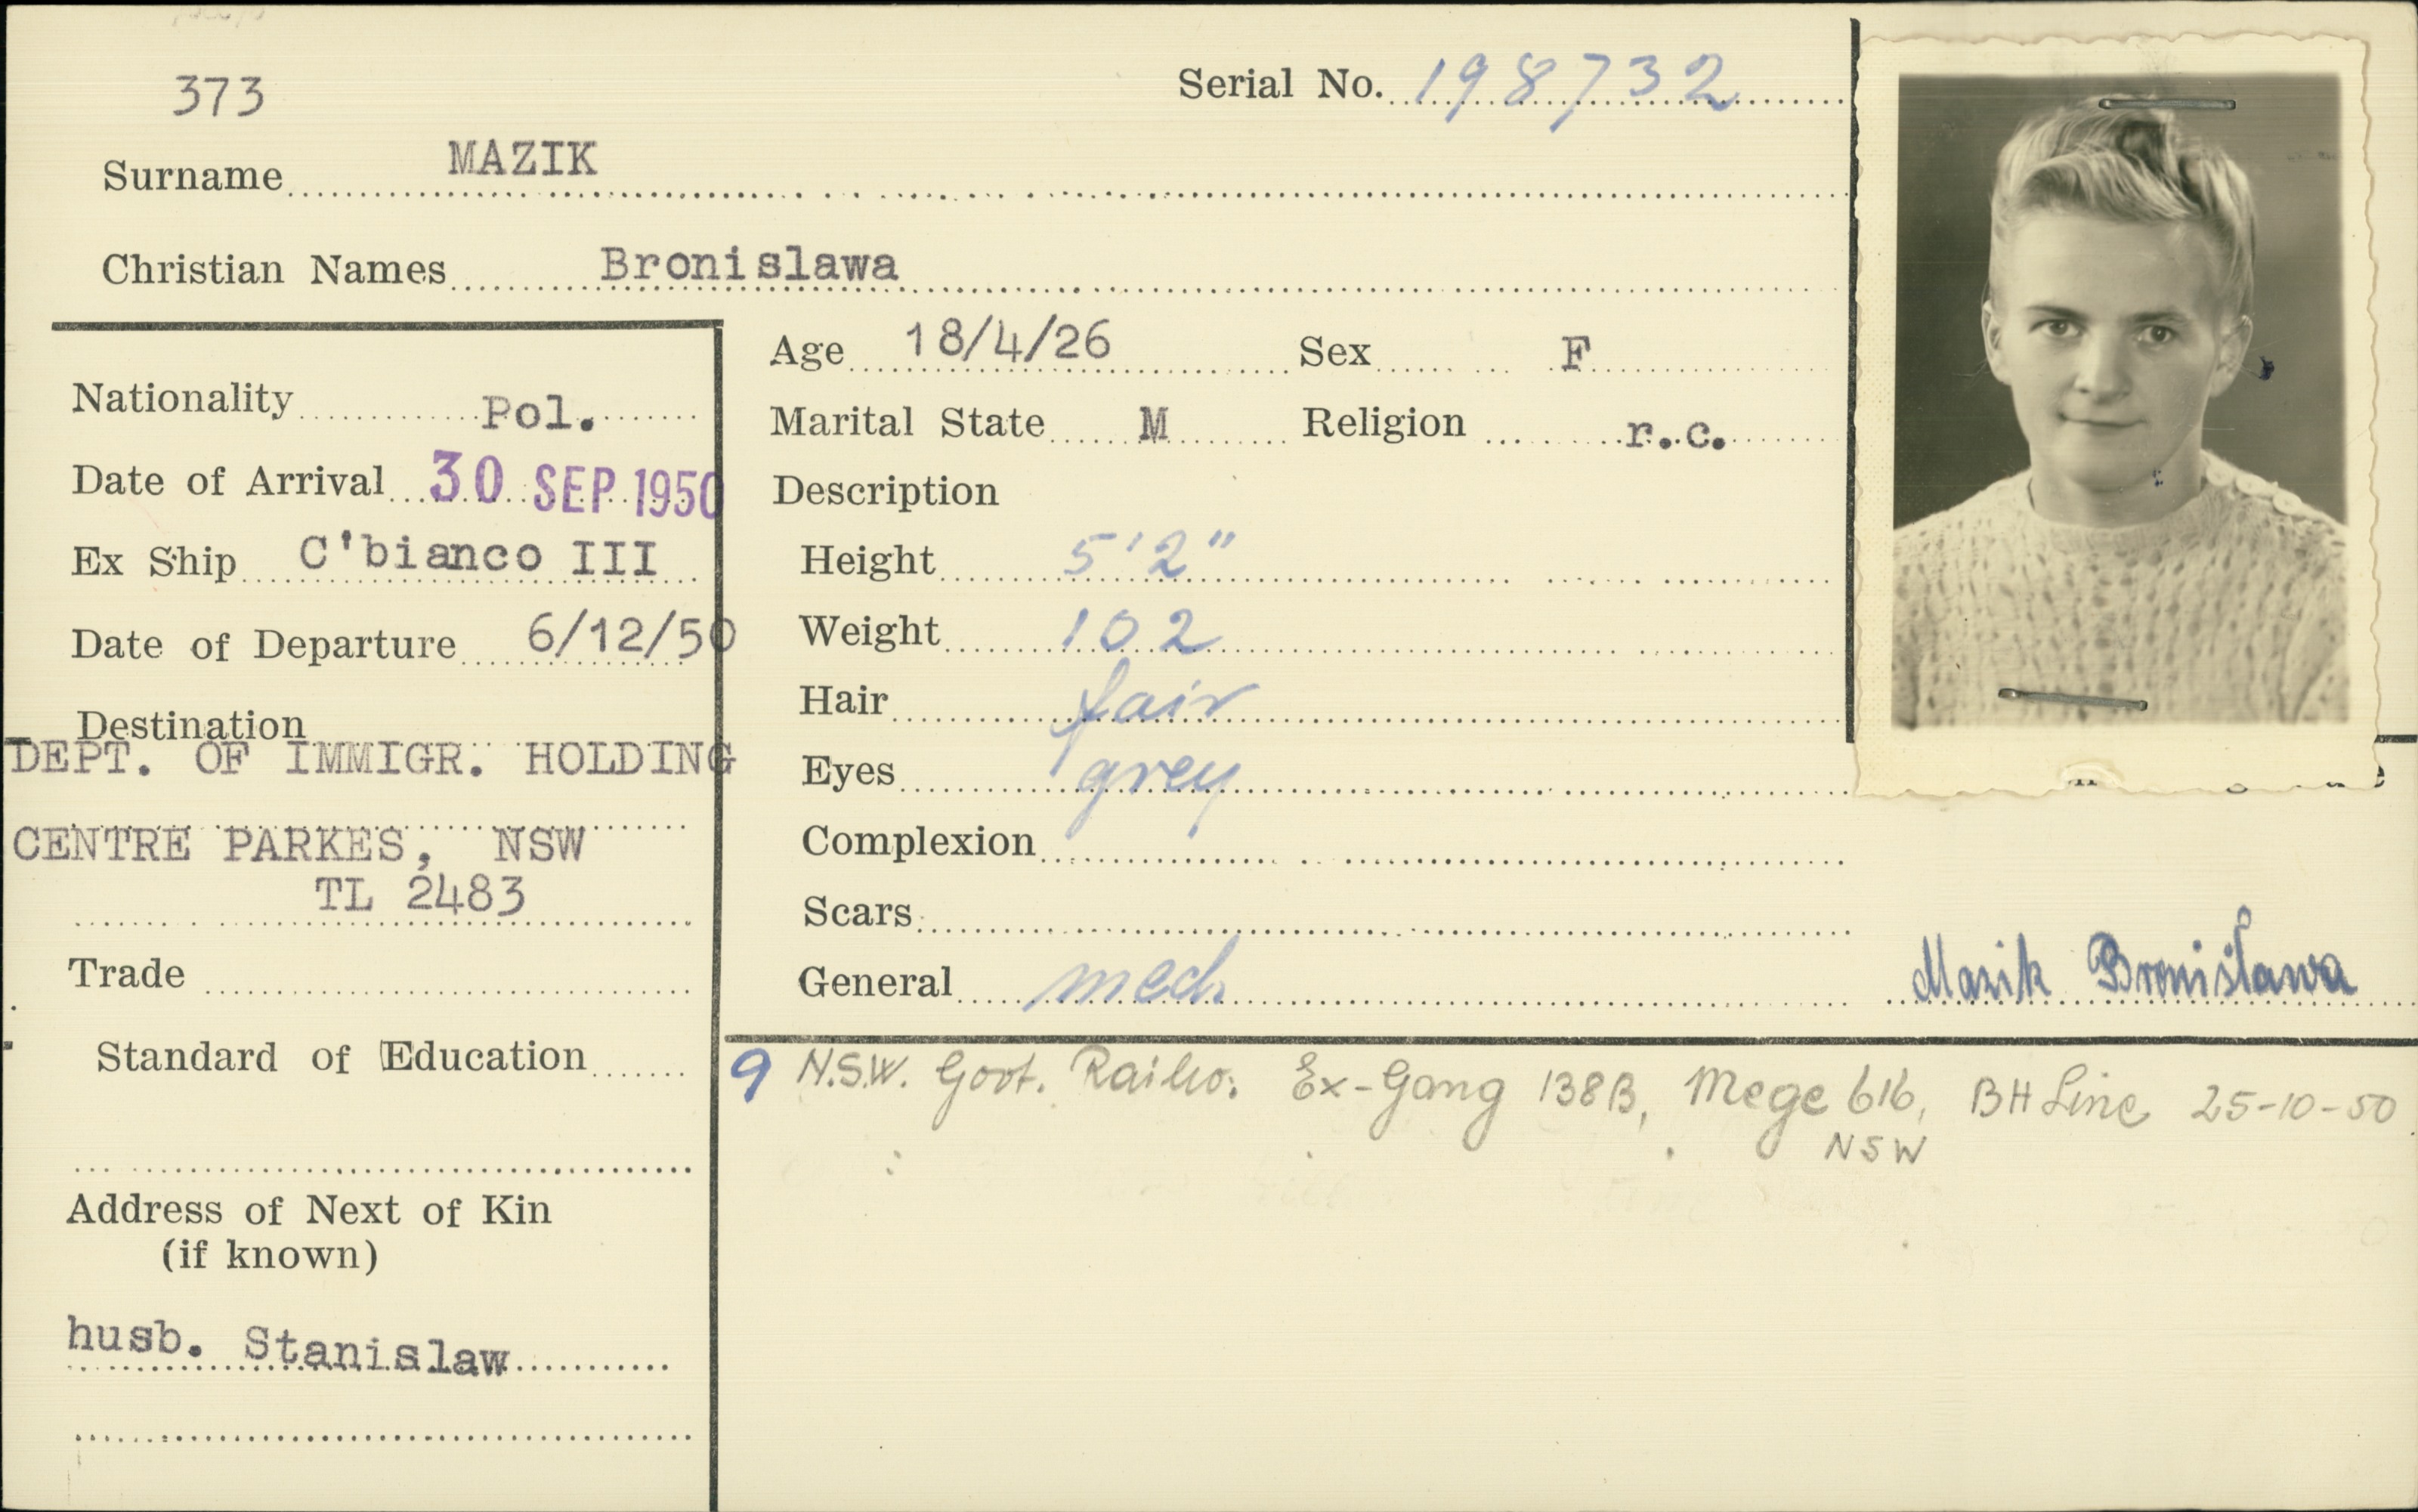 373
Serial No. 198732
Surname MAZIK
Christian Names Bronislawa
Nationality Pol.
Date of Arrival 30 SEP 1950
Ex Ship C'bianco III
Date of Departure 6/12/50
Destination
DEPT. OF IMMIGR. HOLDING
CENTRE PARKES, NSW
TL 2483
Trade
Standard of Education
Address of Next of Kin
(if known)
husb. Stanislaw
Age 18/4/26 Sex F
Marital State M Religion r.c.
Description
Height 5'2"
Weight 102
Hair fair
Eyes grey
Complexion
Scars
General mech
Mazik Bronisława
9 N.S.W. Govt. Ex-Gang 138B, 616, BH Line 25-10-50
NSW